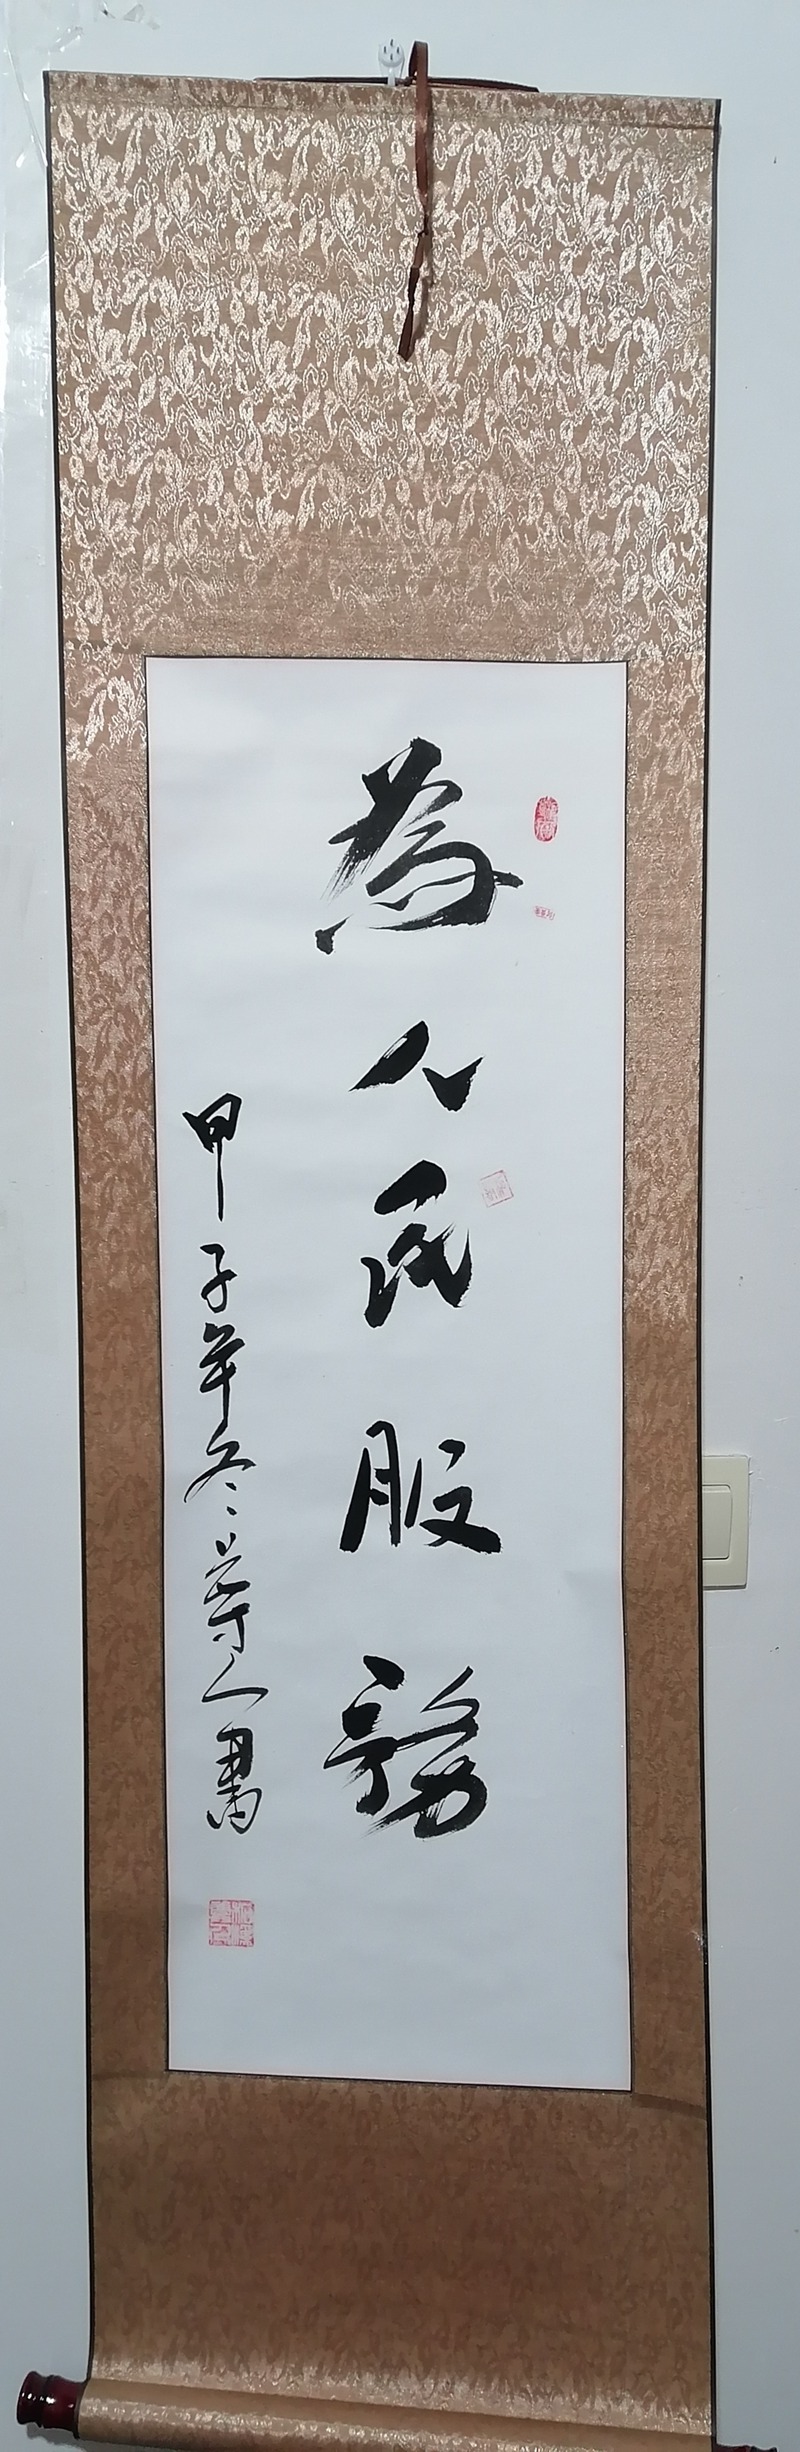 為人民服務
甲子年冬
人書